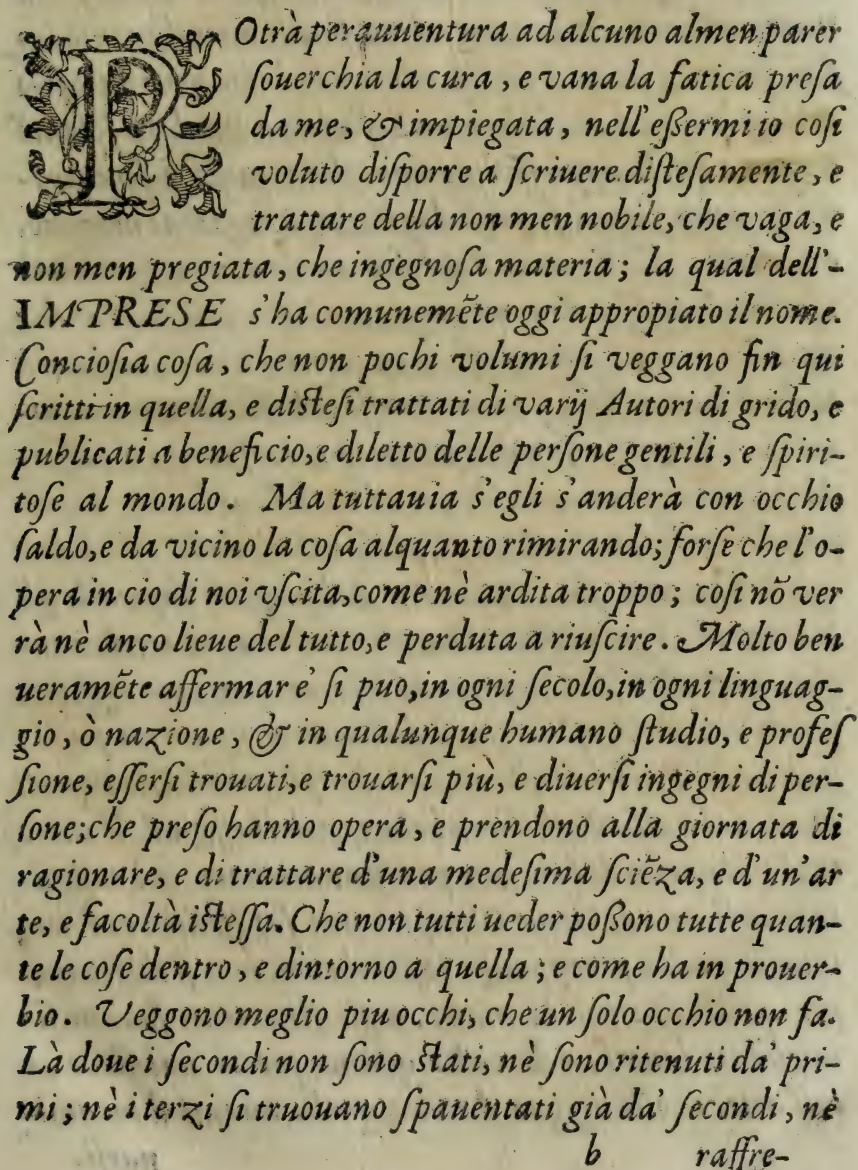 POtrà perauuentura ad alcuno almen parer
ſouerchia la cura, e vana la fatica preſa
da me, & impiegata, nell'eßermi io coſi
voluto diſporre a ſcriuere diſteſamente, e
trattare della non men nobile, che vaga, e
non men pregiata, che ingegnoſa materia; la qual dell'-
IMPRESE s'ha comunemẽte oggi appropiato il nome.
Concioſia coſa, che non pochi volumi ſi veggano fin qui
ſcritti in quella, e diſteſi trattati di varij Autori di grido, e
publicati a beneficio, e diletto delle perſone gentili, e ſpiri-
toſe al mondo. Ma tuttauia s'egli s'anderà con occhio
ſaldo, e da vicino la coſa alquanto rimirando; forſe che l'o-
pera in cio di noi vſcita, come nè ardita troppo; coſi nõ ver
rà nè anco lieue del tutto, e perduta a riuſcire. Molto ben
ueramẽte affermar e' ſi puo, in ogni ſecolo, in ogni linguag-
gio, ò nazione, & in qualunque humano ſtudio, e profeſ
ſione, eſſerſi trouati, e trouarſi più, e diuerſi ingegni di per-
ſone; che preſo hanno opera, e prendono alla giornata di
ragionare, e di trattare d'una medeſima ſciẽza, e d'un'ar
te, e facoltà iſteſſa. Che non tutti ueder poßono tutte quan-
te le coſe dentro, e dintorno a quella; e come ha in prouer-
bio. Veggono meglio piu occhi, che un ſolo occhio non fa.
Là doue i ſecondi non ſono ſtati, nè ſono ritenuti da' pri-
mi; nè i terzi ſi truouano ſpauentati già da' ſecondi, nè
b raffre-